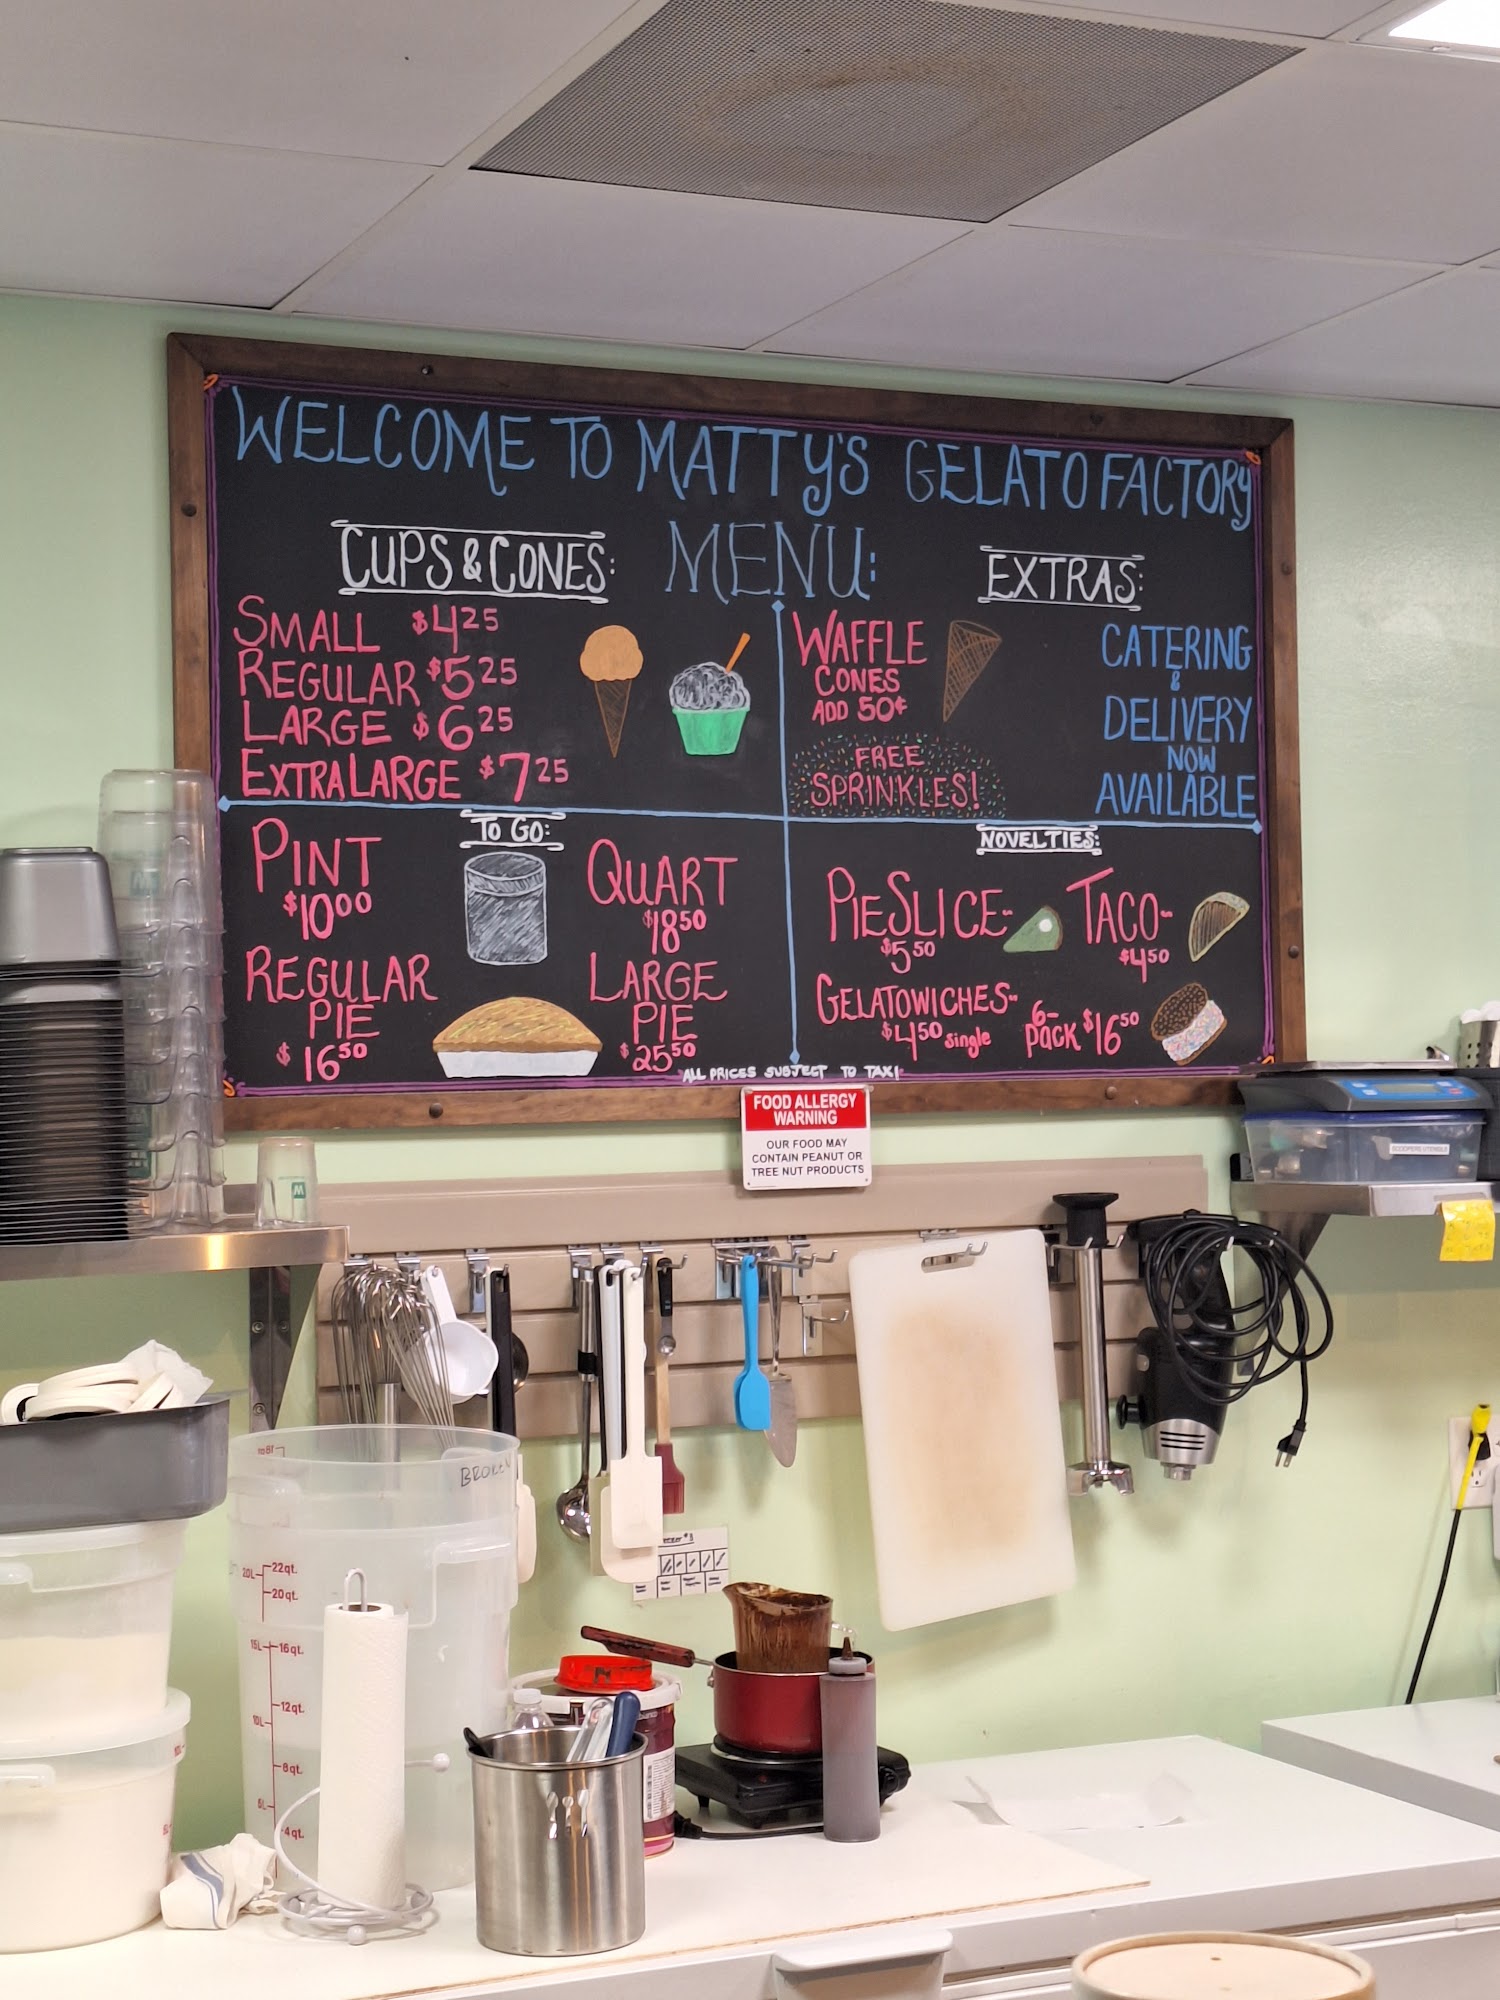 WELCOME TO MATTY'S GELATO FACTORY
MENU:
CUPS & CONES:
SMALL $4.25
REGULAR $5.25
LARGE $6.25
EXTRA LARGE $7.25
EXTRAS:
WAFFLE
CONES
ADD 50¢
FREE
SPRINKLES!
CATERING
&
DELIVERY
NOW
AVAILABLE
TO GO:
PINT
$10.00
QUART
$18.50
REGULAR
PIE
$16.50
LARGE
PIE
$25.50
NOVELTIES:
PIE SLICE-
$5.50
TACO-
$4.50
GELATOWICHES-
$4.50 single
6-
pack $16.50
ALL PRICES SUBJECT TO TAX!
FOOD ALLERGY
WARNING
OUR FOOD MAY
CONTAIN PEANUT OR
TREE NUT PRODUCTS
BROKEN
20L
22qt.
20qt.
15L
16qt.
12qt.
10L
8qt.
5L
4qt.